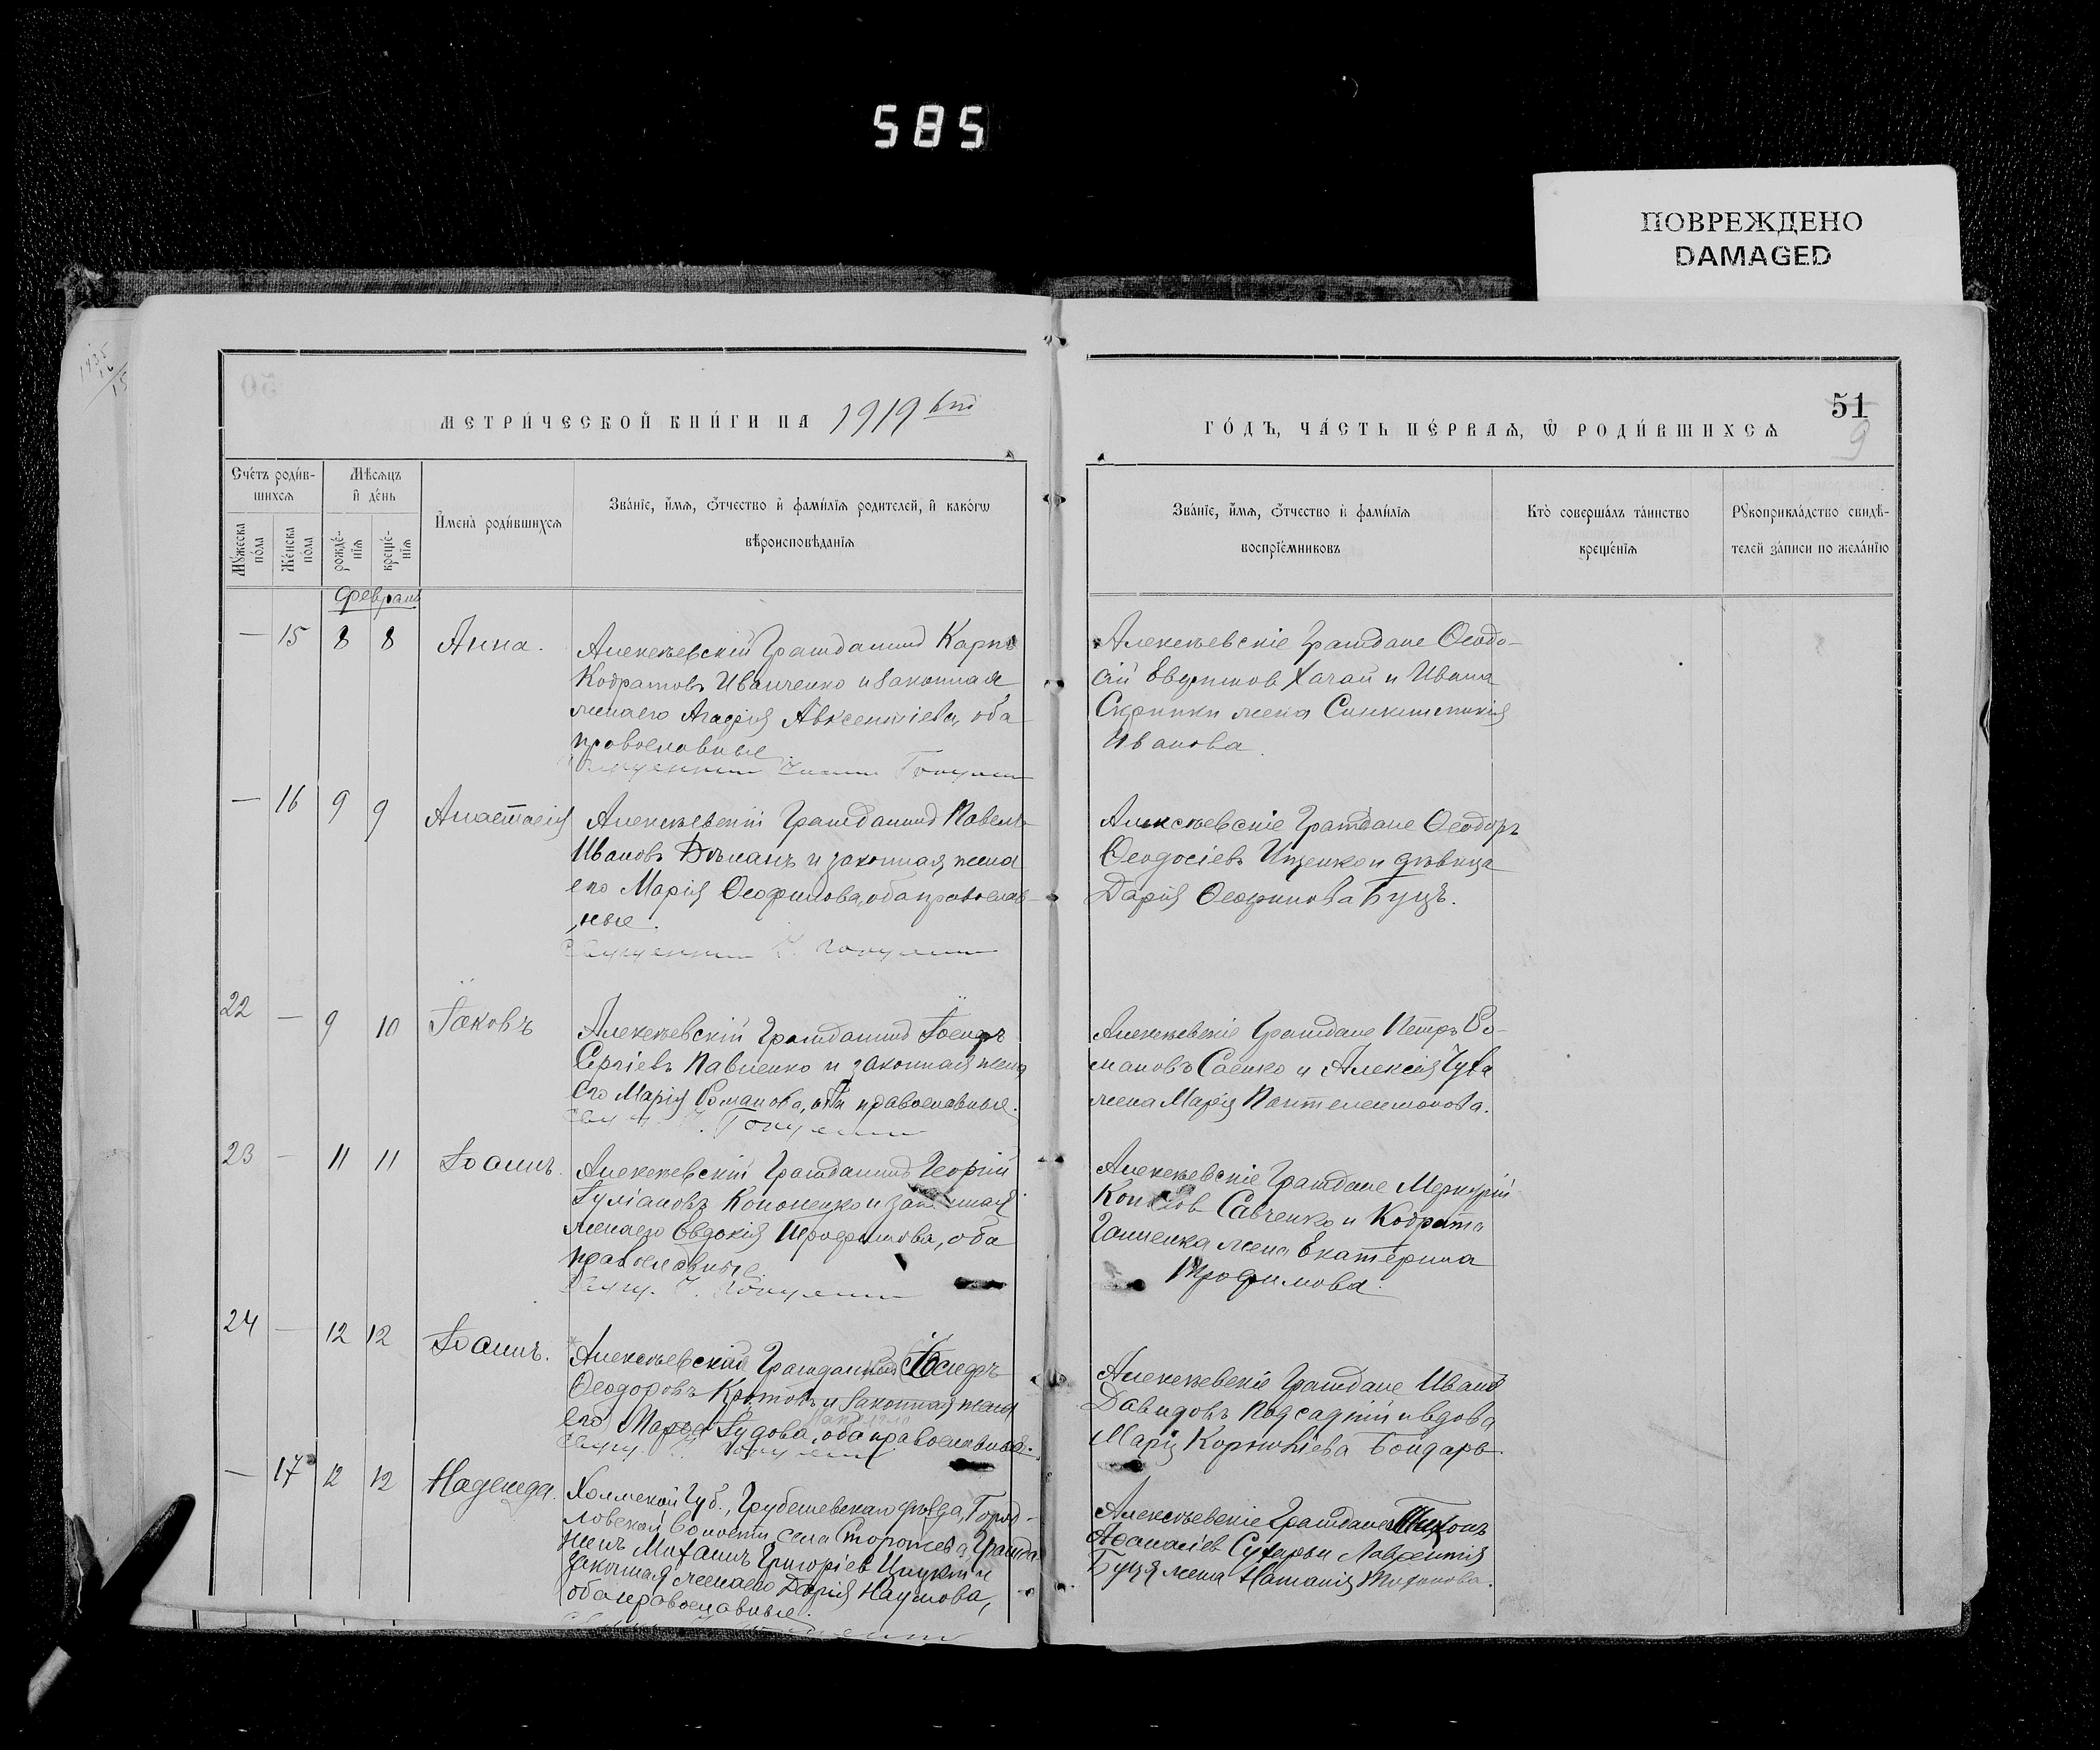 585
ПОВРЕЖДЕНО
DAMAGED
МЕТРИ́ЧЕСКОЙ КНИ́ГИ НА 1919 й
ГО́ДЪ, ЧА́СТЬ ПЕ́РВАѦ, Ѿ РОДИ́ВШИХСѦ
51
9
Сче́тъ роди́в-
шихсѧ
Мѣ́сѧцъ
и҆ де́нь
Му́жеска по́ла
Же́нска по́ла
рожде́-
нїѧ
креще́-
нїѧ
И҆мена̀ роди́вшихсѧ
Зва́нїе, и҆́мѧ, ѻ҆́тчество и҆ фамі́лїѧ роди́телей, и҆ како́гѡ
вѣроисповѣ́данїѧ
Зва́нїе, и҆́мѧ, ѻ҆́тчество и҆ фамі́лїѧ
воспрїе́мниковъ
Кто̀ соверша́лъ та́инство
креще́нїѧ
Рꙋкоприкла́дство свидѣ́-
телей за́писи по жела́нїю
Февраль
— 15 8 8 Анна.
Алексѣевскій Гражданинъ Карпъ
Кодратовъ Иванченко и законная
жена его Агафія Авксентіева, оба
православные
Алексѣевскіе Граждане Ѳеодо-
сій Хачай и Ивана
Скрипки жена Синклитикія
Иванова.
— 16 9 9 Анастасія
Алексѣевскій Гражданинъ Павелъ
Ивановъ и законная жена
его Марія Ѳеофилова, оба православ-
ные.
Алексѣевскіе Граждане Ѳеодоръ
Ѳеодосіевъ Ищенко и дѣвица
Дарія Ѳеофилова Буцъ.
22 — 9 10 Іаковъ
Алексѣевскій Гражданинъ Іосифъ
Сергіевъ Павленко и законная жена
его Марія Романова, оба православные.
Алексѣевскіе Граждане Петръ Ро-
мановъ Саенко и Алексія Чуба
жена Марія Пантелеимонова.
23 — 11 11 Іоаннъ.
Алексѣевскій Гражданинъ Георгій
Іуліановъ Кононенко и законная
жена его Евдокія Трофимова, оба
православные
Алексѣевскіе Граждане Меркурій
Савченко и Кодрата
жена Екатерина
Трофимова.
24 — 12 12 Іоаннъ.
Алексѣевскій Гражданинъ Іосифъ
Ѳеодоровъ Кротовъ и законная жена
его Іудова, оба православные.
Алексѣевскіе Граждане Иванъ
Давидовъ Подсадній и вдова
Марія Корнилієва Бондарь.
— 17 12 12 Надежда.
Холмской Губ., Грубешевскаго уѣзда, Город-
ловской волости, села Гражда-
нинъ Михаилъ Григоріев и
законная жена его Дарія Наумова,
оба православные.
Алексѣевскіе Граждане Тихонъ
Аѳанасіев и Лаврентія
Буця жена Наталія